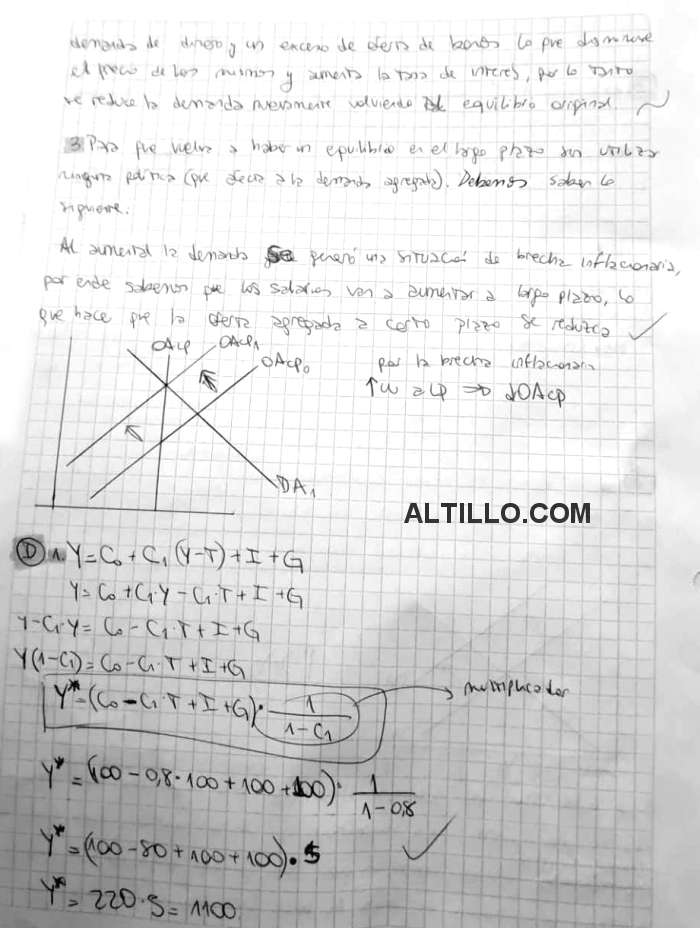 demanda de dinero y un exceso de oferta de bonos lo que disminuye
el precio de los mismos y aumenta la tasa de interés, por lo tanto
se reduce la demanda nuevamente volviendo al equilibrio original.
3. Para que vuelva a haber un equilibrio en el largo plazo sin utilizar
ninguna política (que afecta a la demanda agregada). Debemos saber lo
siguiente.
Al aumentar la demanda se generó una situación de brecha inflacionaria,
por ende sabemos que los salarios van a aumentar a largo plazo, lo
que hace que la oferta agregada a corto plazo se reduzca
OALP
OACP₁
OACP₀
por la brecha inflacionaria
↑W a LP ⇒ ↓OACP
DA₁
ALTILLO.COM
D 1. Y = C₀ + C₁ (Y-T) + I + G
Y = C₀ + C₁·Y - C₁·T + I + G
Y - C₁·Y = C₀ - C₁·T + I + G
Y (1-C₁) = C₀ - C₁·T + I + G
Y* = (C₀ - C₁·T + I + G) · 1/(1-C₁) → multiplicador
Y* = (100 - 0,8·100 + 100 + 100) · 1/(1-0,8)
Y* = (100 - 80 + 100 + 100) · 5
Y* = 220 · 5 = 1100